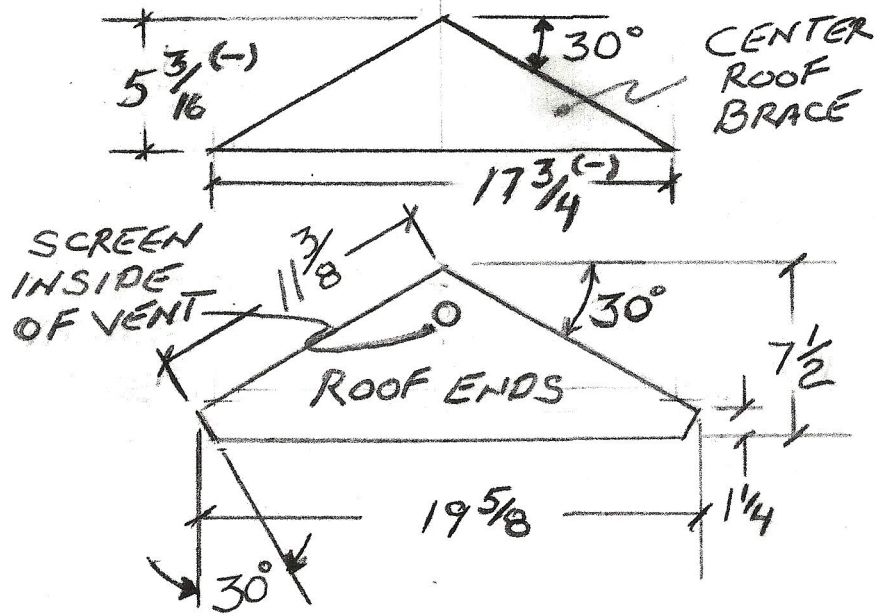 5 3/16 (-)
30°
CENTER
ROOF
BRACE
17 3/4 (-)
SCREEN
INSIDE
OF VENT
11 3/8
30°
7 1/2
ROOF ENDS
19 5/8
1 1/4
30°